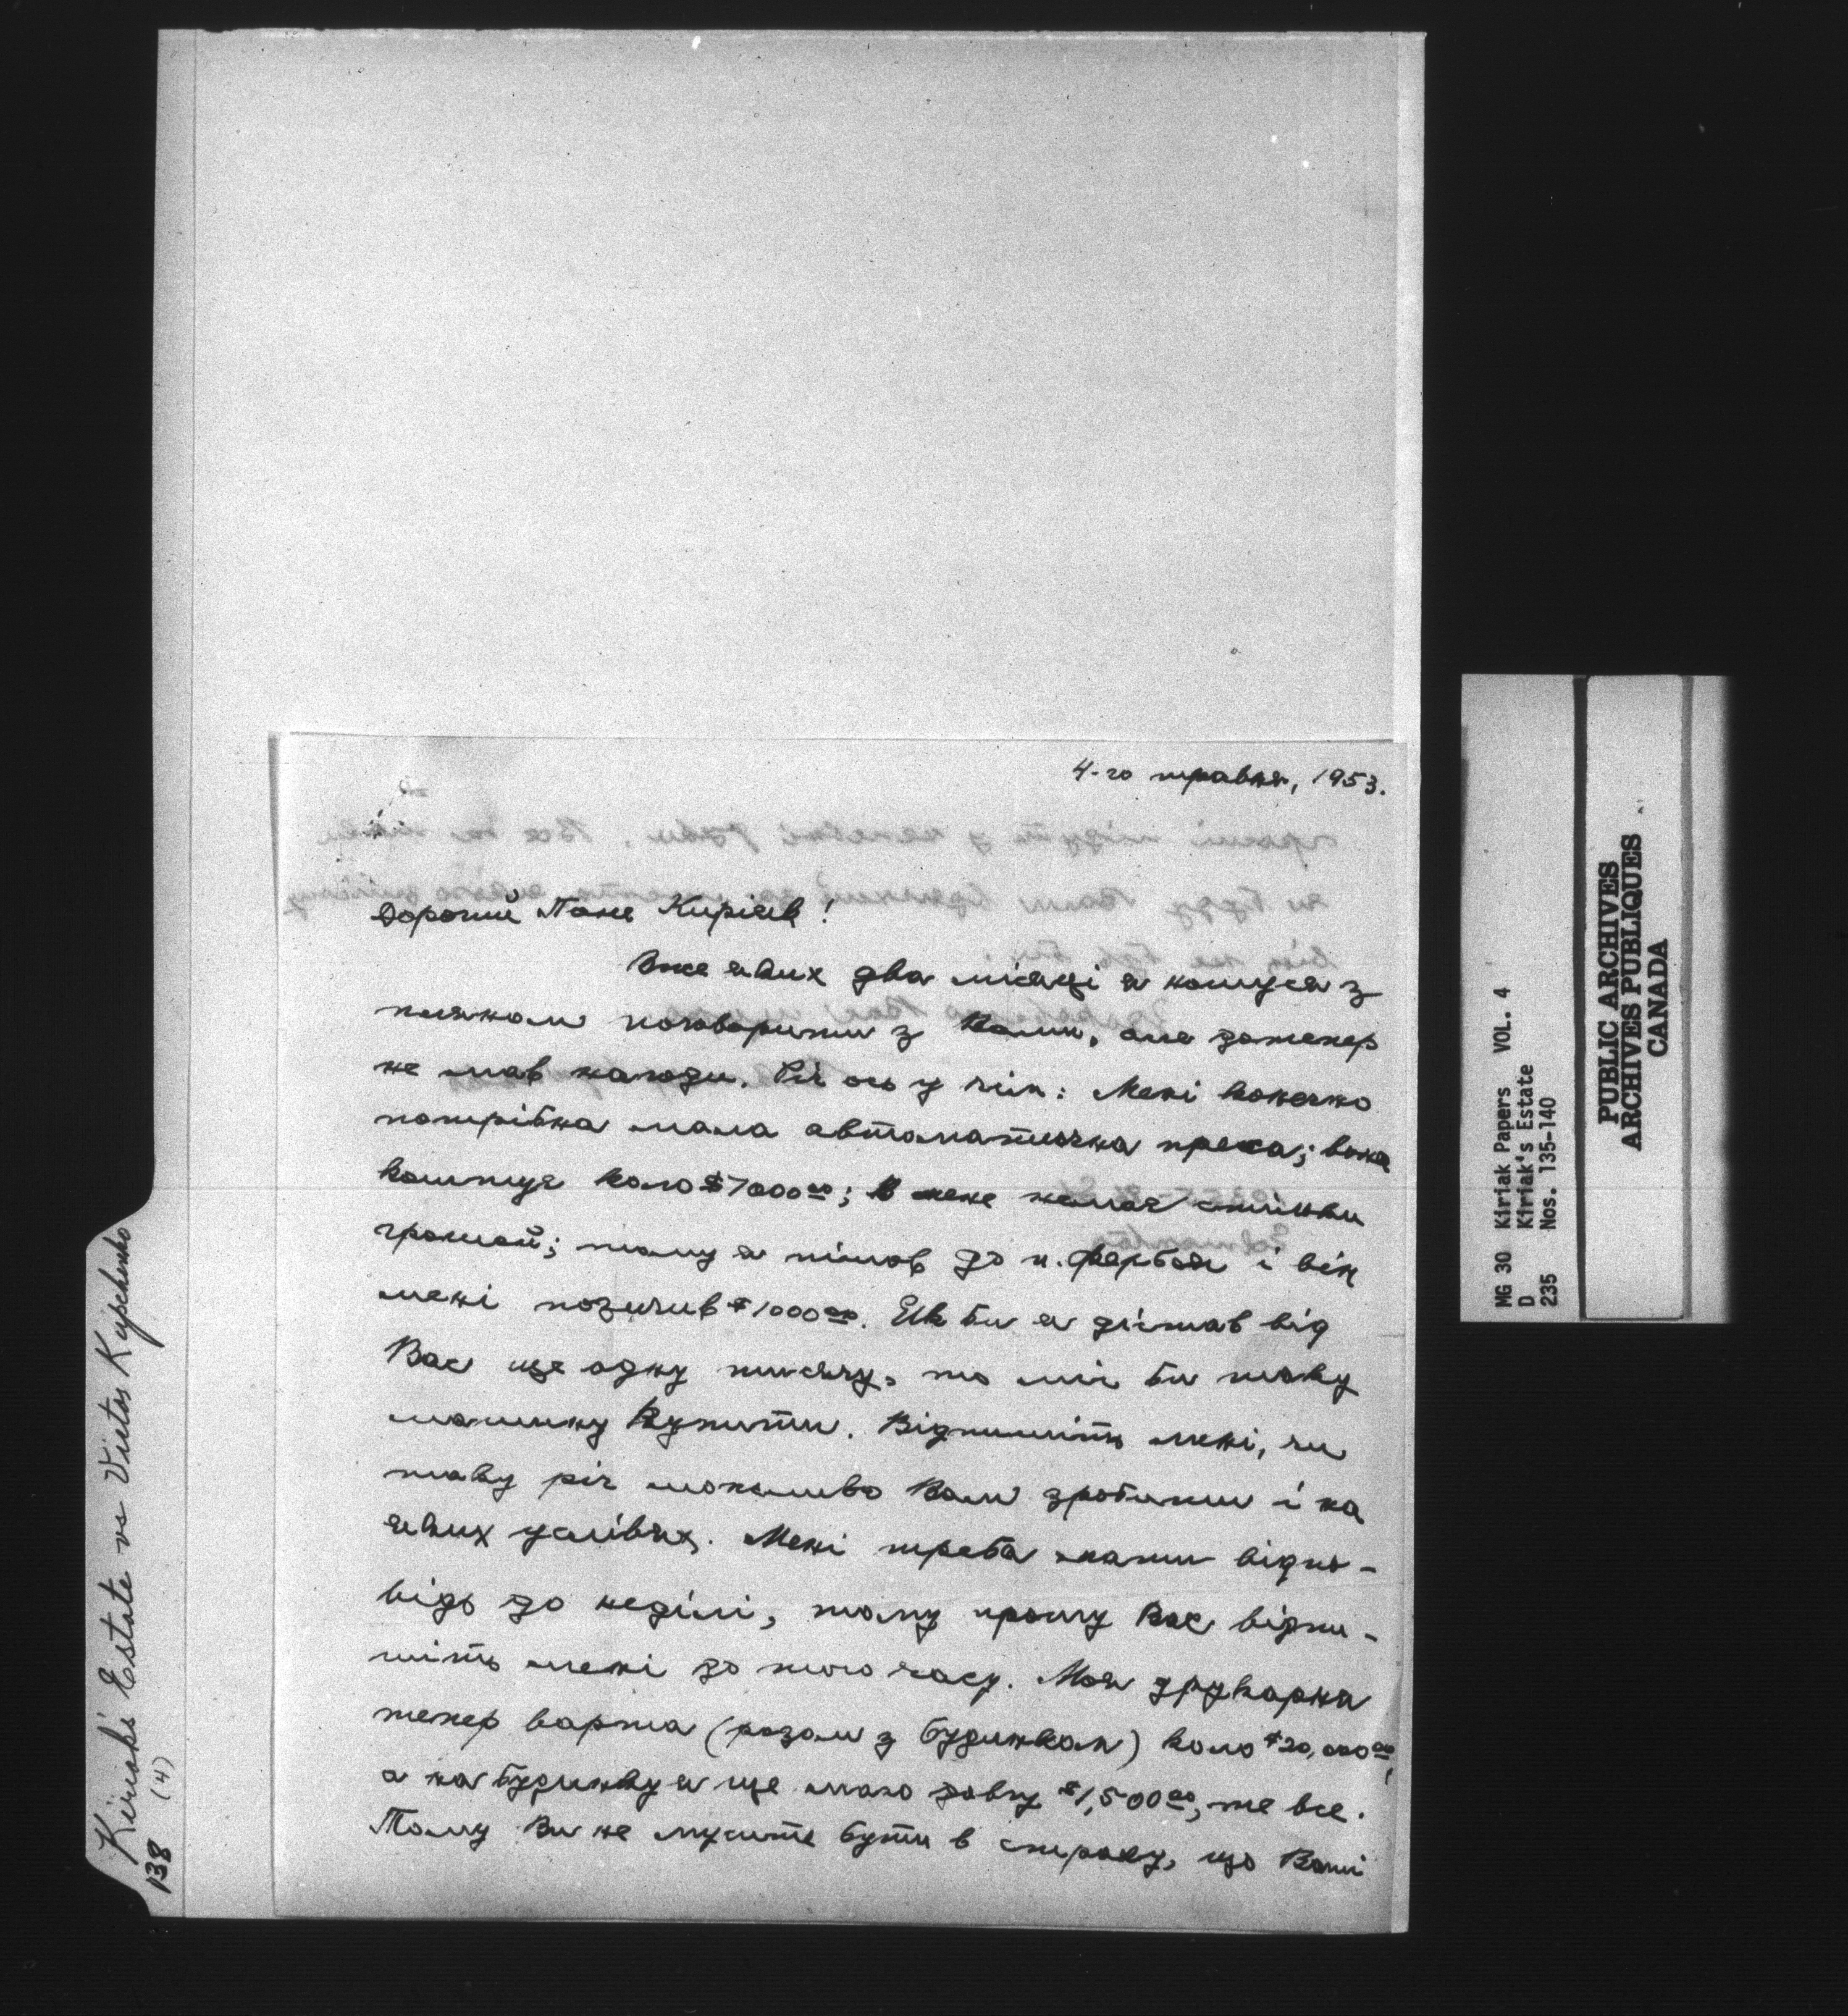 4-го травня, 1953.
Дорогий Пане Киріяк!
Вже яких два місяці я ношуся з
пляном поговорити з Вами, але дотепер
не мав нагоди. Річ ось у чім: Мені конечно
потрібна мала автоматична преса; вона
коштує коло $7000.00; В мене немає стільки
грошей; тому я пішов до п. Фербея і він
мені позичив $1000.00. Як би я дістав від
Вас ще одну тисячу, то міг би таку
машину купити. Відпишіть мені, чи
таку річ можливо Вам зробити і на
яких услівях. Мені треба мати відпо-
відь до неділі, тому прошу Вас відпи-
шіть мені до того часу. Моя друкарня
тепер варта (разом з будинком) коло $20,000.00,
а на будинку я ще маю довгу $1,500.00, те все.
Тому Ви не мусите бути в страху, що Ваші
Kiriak's Estate vs Victor Kupchenko
138 (4)
MG 30 Kiriak Papers VOL. 4
D Kiriak's Estate
235 Nos. 135-140
PUBLIC ARCHIVES
ARCHIVES PUBLIQUES
CANADA